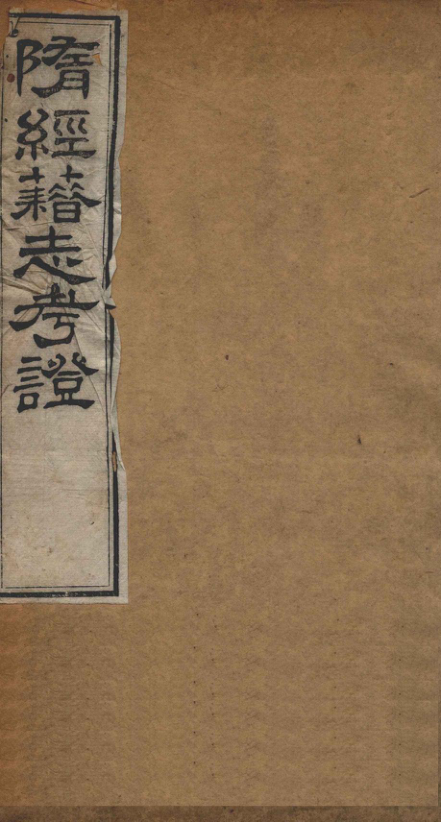 隋經籍志考證